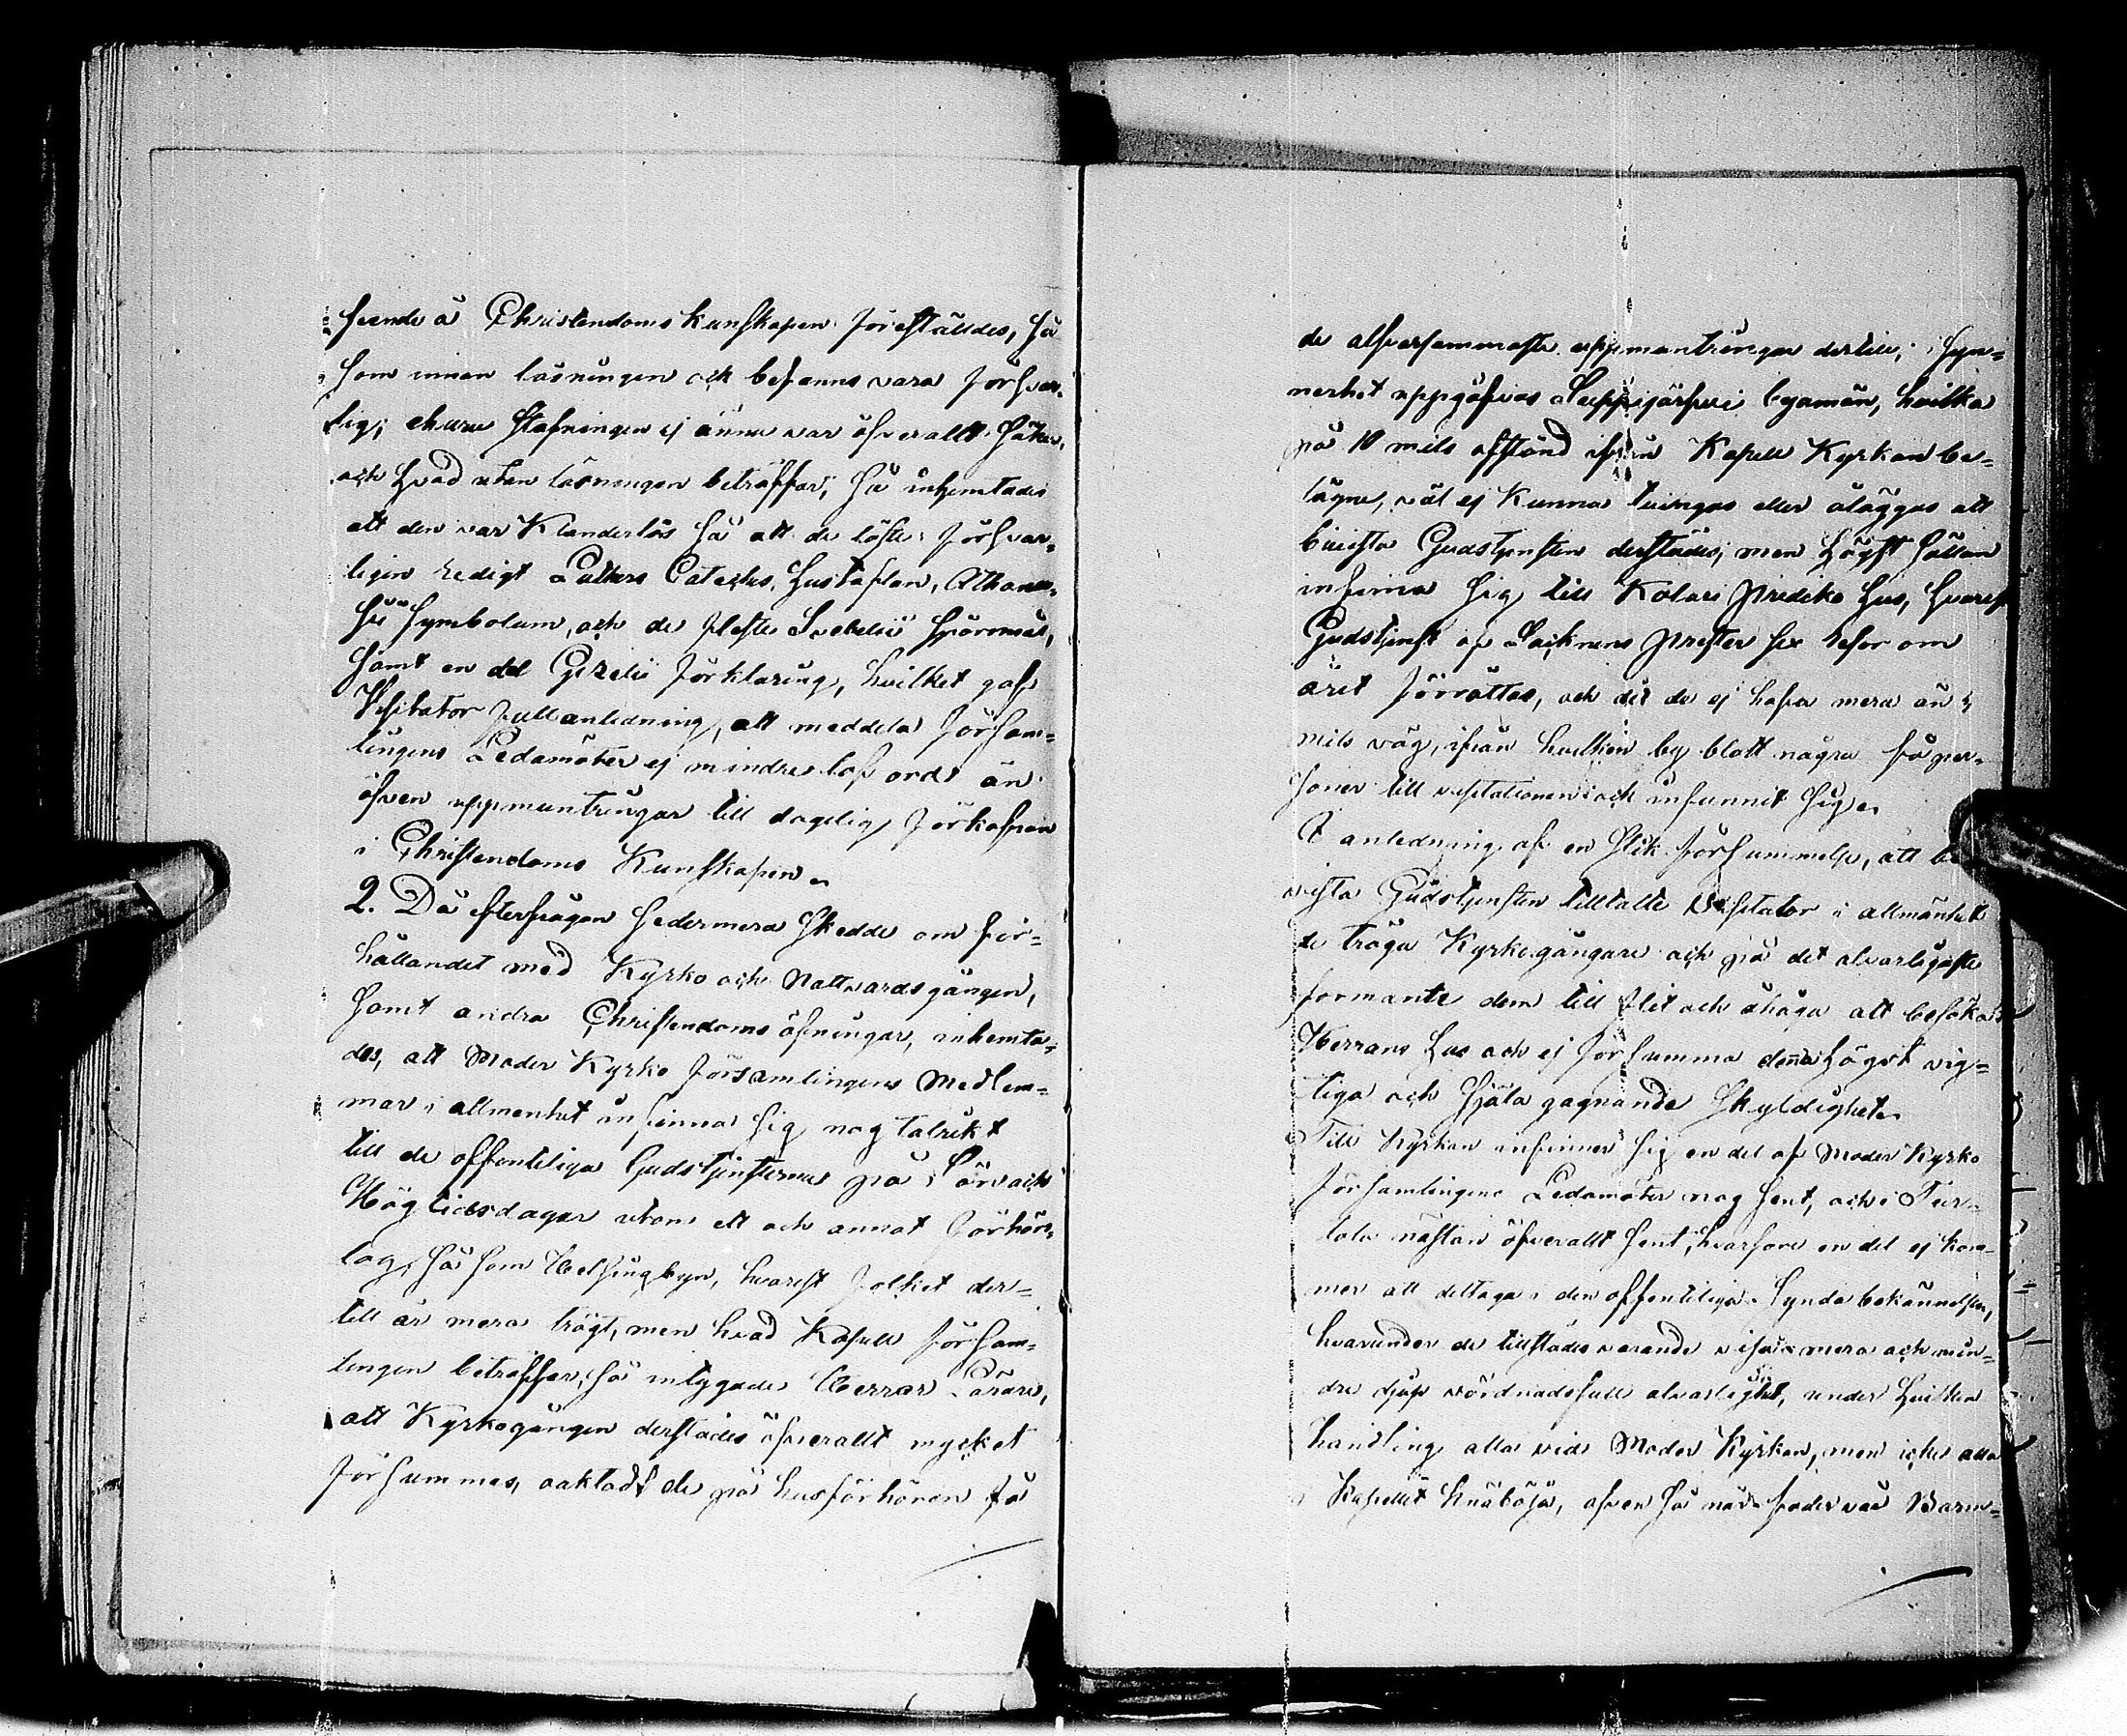 seende å Christendoms kunskapen föreställdes, så
som innan läsningen ock befanns vara försvar-
lig, ehuru stafningen ej ännu var öfverallt säker,
och hvad utan läsningen beträffar, så inhemtades
att den var klanderlös så att de läste försvar-
ligen redigt Luthers Cateches, Hustaflan, Athana-
sii Symbolum, och de fleste Svebelii spörsmål,
samt en del Gezelii förklaring, hvilket gaf
Visitator full anledning, att meddela försam-
lingens Ledamöter ej mindre lof ord än
öfven uppmuntringar till dagelig förkofran
i Christendoms Kunskapen.
2. Då efterfrågan sedermera skedde om för-
hållandet med Kyrko och Nattvardsgången,
samt andra Christendoms öfningar, inhemta-
des, att Moder Kyrko församlingens Medlem-
mar i allmenhet infinna sig nog talrikt
till de offenteliga Gudstjensterna på Sön och
Högtidsdagar utom ett och annat Förhörs-
lag, så som Helsingbyn, hvarest folket der-
till är mera trögt, men hvad Kapell försam-
lingen beträffar, så intygade Herrar Lärare,
att Kyrkogången derstädes öfverallt mycket
försummas, oaktadt de på husförhören få
de alfversammaste uppmuntringar dertill; i syn-
nerhet uppgåfvos Seppijärfvi byamän, hvilka
på 10 mils afstånd ifrån Kapell Kyrkan be-
lägne, väl ej kunna tvingas eller åläggas att
bivista Gudstjensten derstädes, men högst sällan
infinna sig till Kolari Prediko hus, hvarest
Gudstjenst af Socknens Prester sex resor om
året förrättas, och dit de ej hafva mera än 4
mils väg, ifrån hvilken by blott några få per-
soner till visitationen ock infunnit sig.
I anledning af en slik försummelse, att bi-
vista Gudstjensten tilltalte Visitator i allmänhet
de tröga Kyrkogångare och på det alvarligaste
förmante dem till flit och åhåga att besöka
Herrans hus och ej försumma denna högst vig-
tiga och själa gagnande skyldighet.
Till Kyrkan infinner sig en del af Moder Kyrko
församlingens Ledamöter nog sent, och i Tur-
tola nästan öfverallt sent, hvarföre en del ej kom-
mer att deltaga i den offenteliga Synda bekännelsen,
hvarunder de tillstädes varande visa mera och min-
dre djup vördnadsfull alvarlighet, under hvilken
handling alla vid Moder Kyrkan, men icke alla
i Kapellet knäböja, äfven så när fader vår Barm-